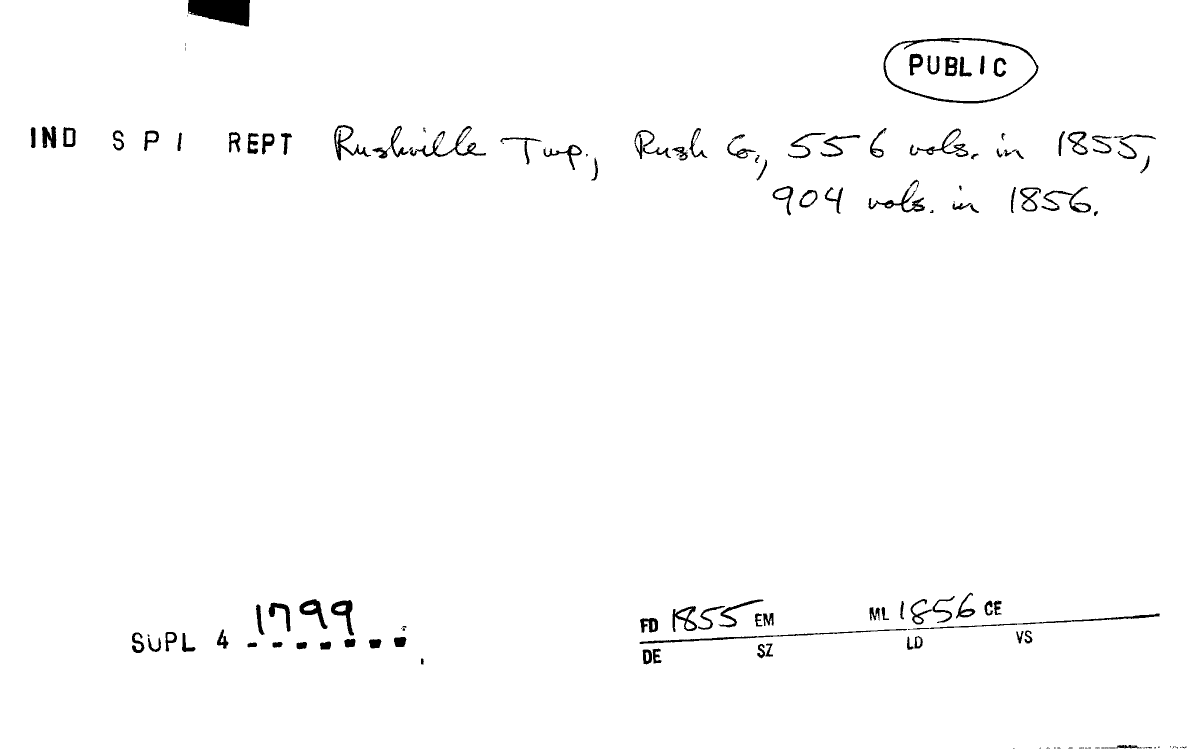 PUBLIC
IND S P I REPT Rushville Twp., Rush Co., 556 vols. in 1855,
904 vols. in 1856.
1799
SUPL 4 -------
FD 1855 EM ML 1856 CE
DE SZ LD VS